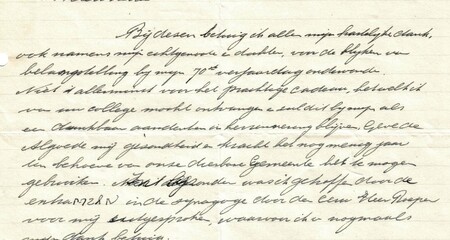 Bij dezen betuig ik allen mijn hartelijke dank,
ook namens mijn echtgenoote en dochter, voor de blijken van
belangstelling bij mijn 70st verjaardag ondervonden.
Niet 't allerminst voor het prachtige cadeau, hetwelk ik
van uw college mocht ontvangen en zal dit bij mij als
een dankbaar aandenken in herinnering blijven. Geve de
Algoede mij gezondheid en kracht het nog menig jaar
ten behoeve van onze dierbare Gemeente het te mogen
gebruiken. was ik getroffen door de
in de synagoge door den Eerw Heer
voor mij uitgesproken, waarvoor ik u nogmaals
mijn dank betuig.